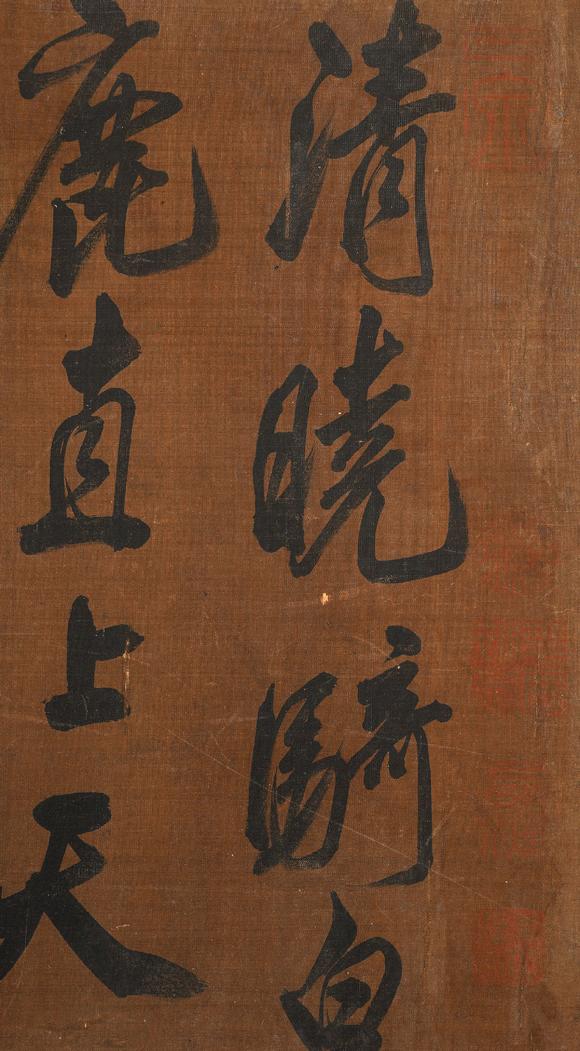 清曉騎白
鹿直上天